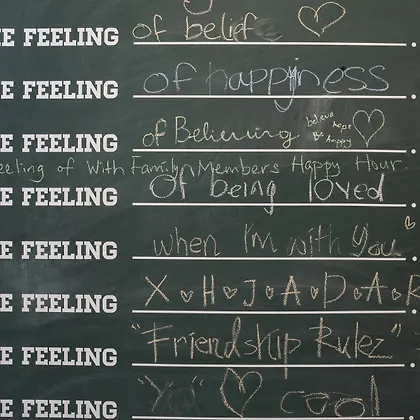 E FEELING of belief
E FEELING of happiness
E FEELING of Believing believe hope Be happy
eeling of With Family Members Happy Hour.
E FEELING Of being loved
E FEELING when I'm with You
E FEELING X H J A D A R
E FEELING "Friendship Rulez"
E FEELING "Ya" cool